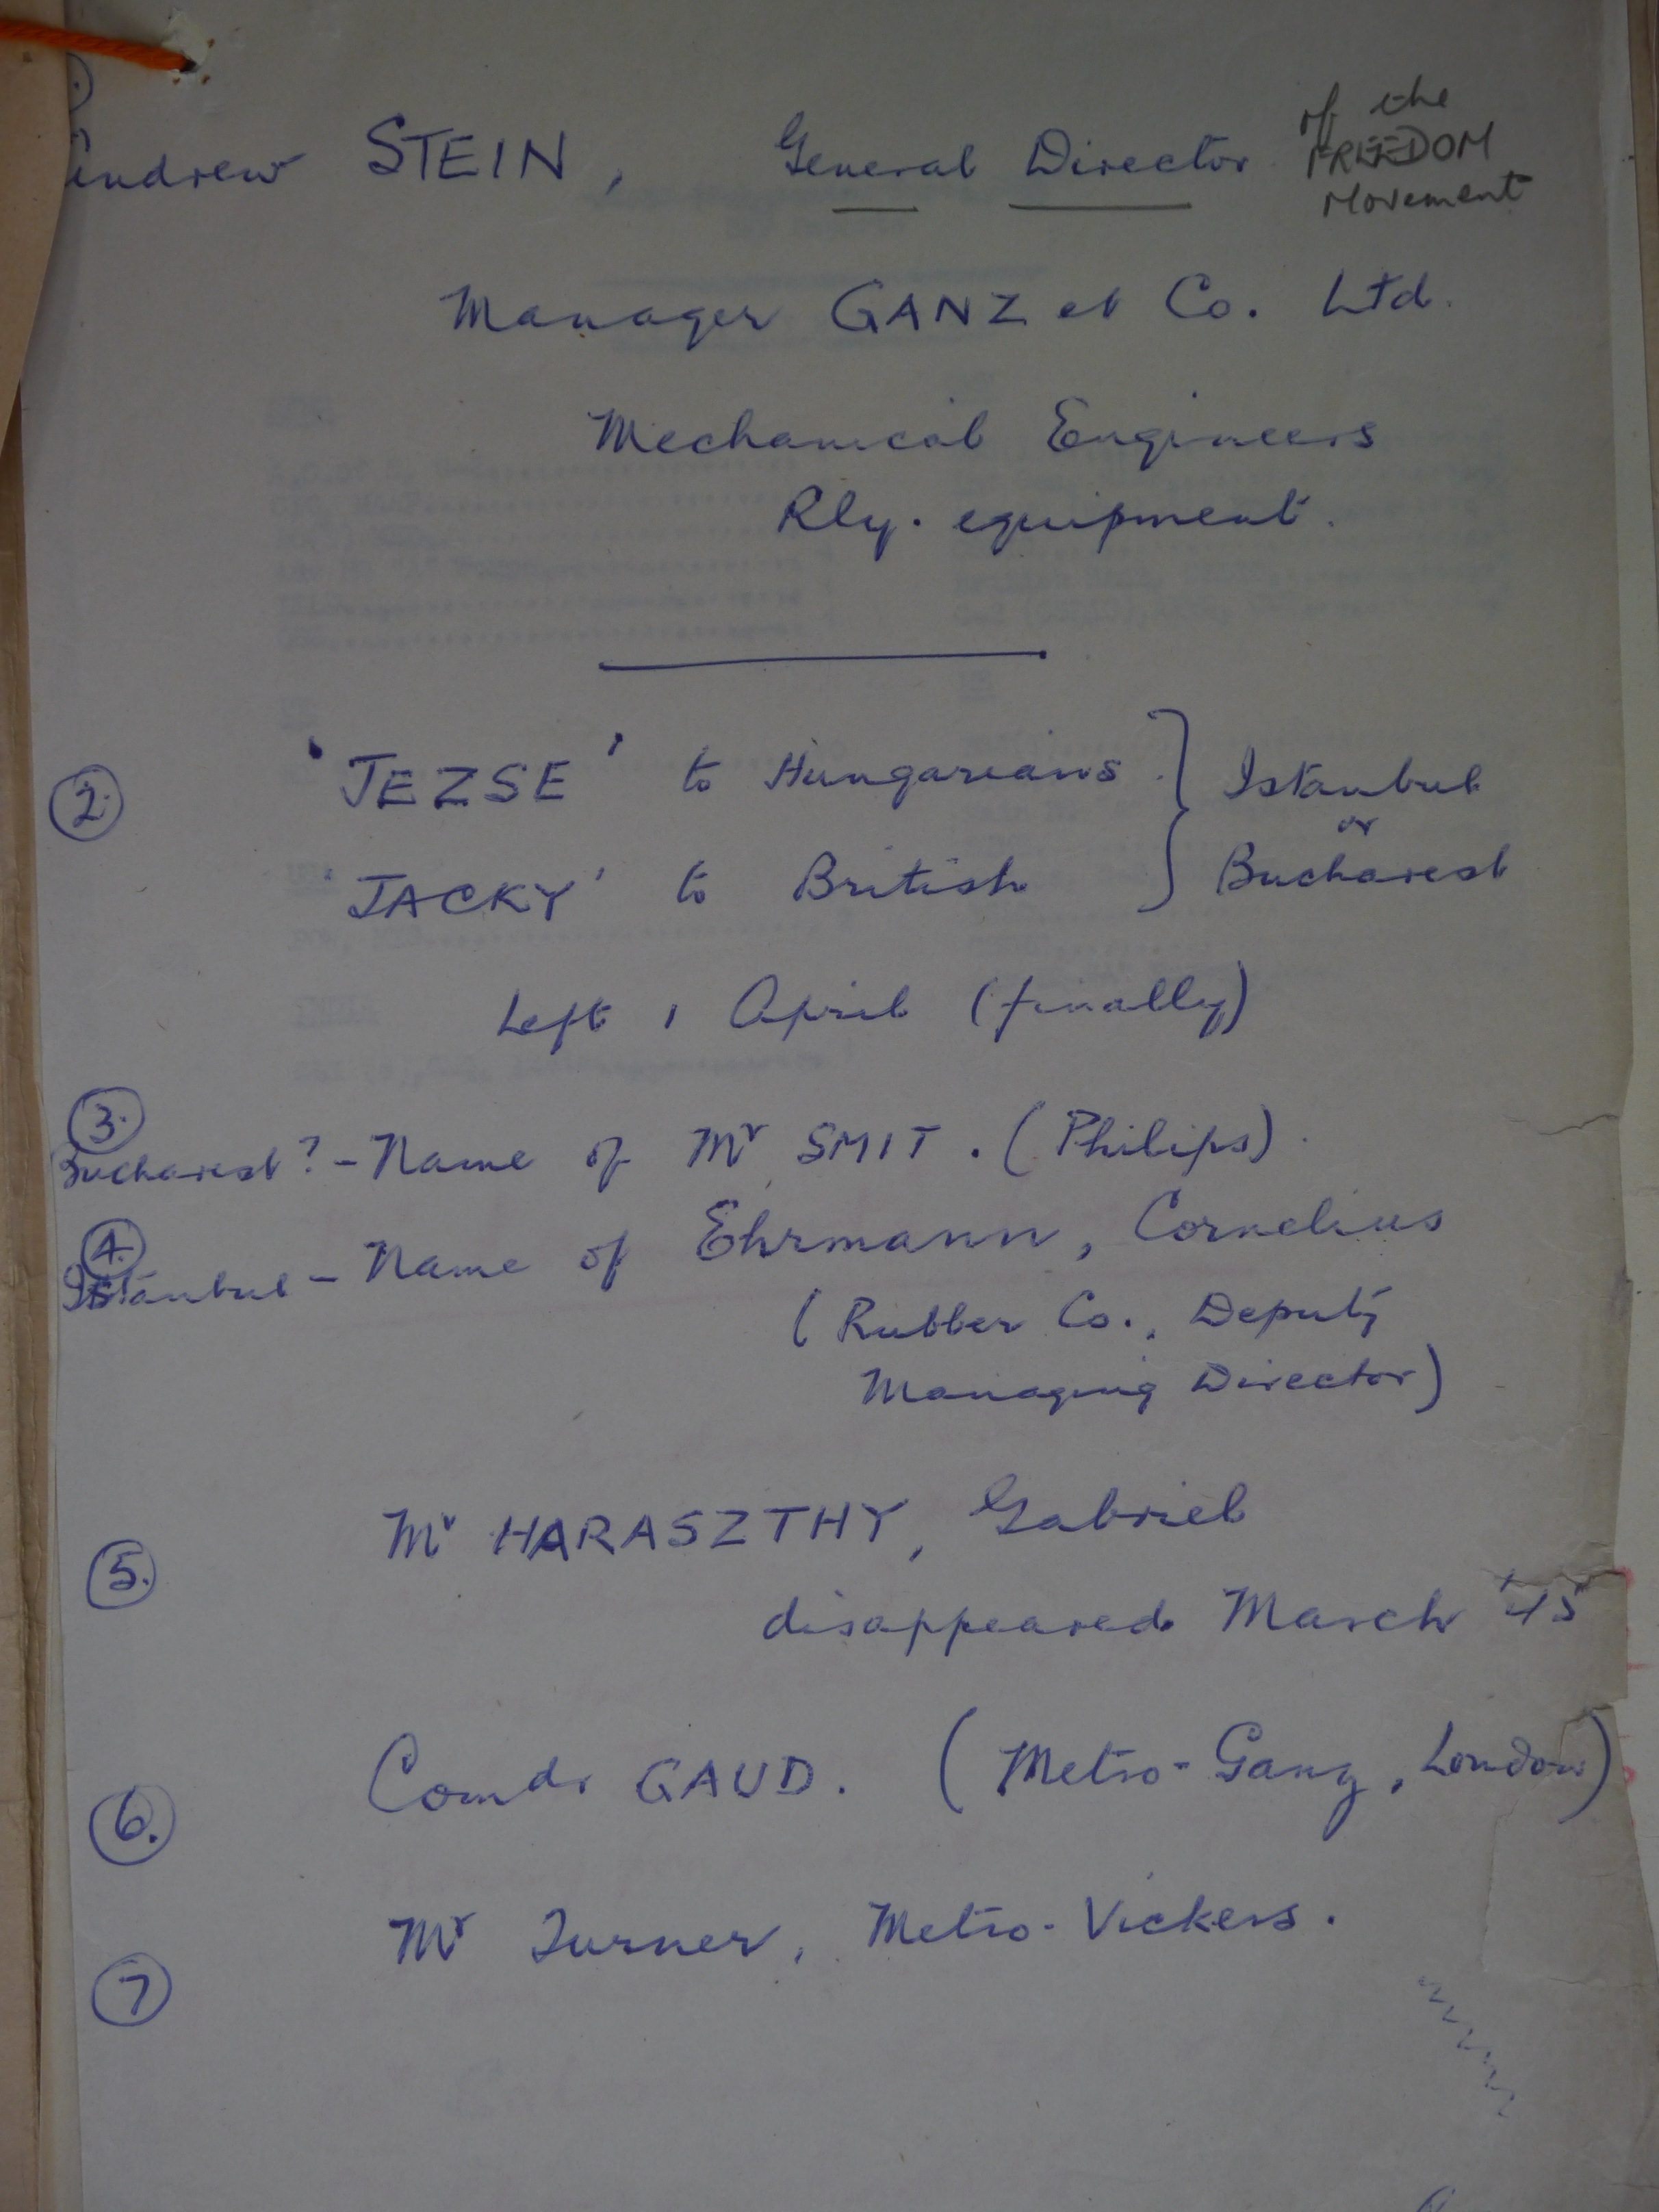 Andrew STEIN, General Director of the
FREEDOM
Movement
Manager GANZ et Co. Ltd.
Mechanical Engineers
Rly. equipment.
2. 'JEZSE' to Hungarians } Istanbul
or
'JACKY' to British } Bucharest
Left 1 April (finally)
3.
Bucharest? - Name of Mr SMIT. (Philips).
4.
Istanbul - Name of Ehrmann, Cornelius
(Rubber Co., Deputy
Managing Director)
5. Mr HARASZTHY, Gabriel
disappeared March '45
6. Comdr GAUD. (Metro-Ganz, London)
7 Mr Turner, Metro-Vickers.